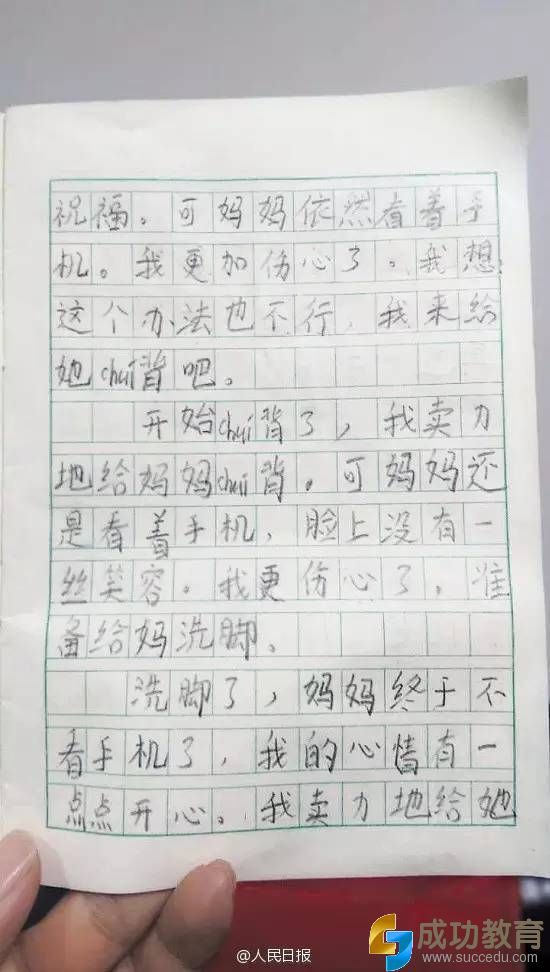 祝福。可妈妈依然看着手
机。我更加伤心了。我想
这个办法也不行，我来给
她chuí背吧。
开始chuí背了，我卖力
地给妈妈chuí背。可妈妈还
是看着手机，脸上没有一
丝笑容。我更伤心了，准
备给妈洗脚。
洗脚了，妈妈终于不
看手机了，我的心情有一
点点开心。我卖力地给她
@人民日报
成功教育
www.succedu.com